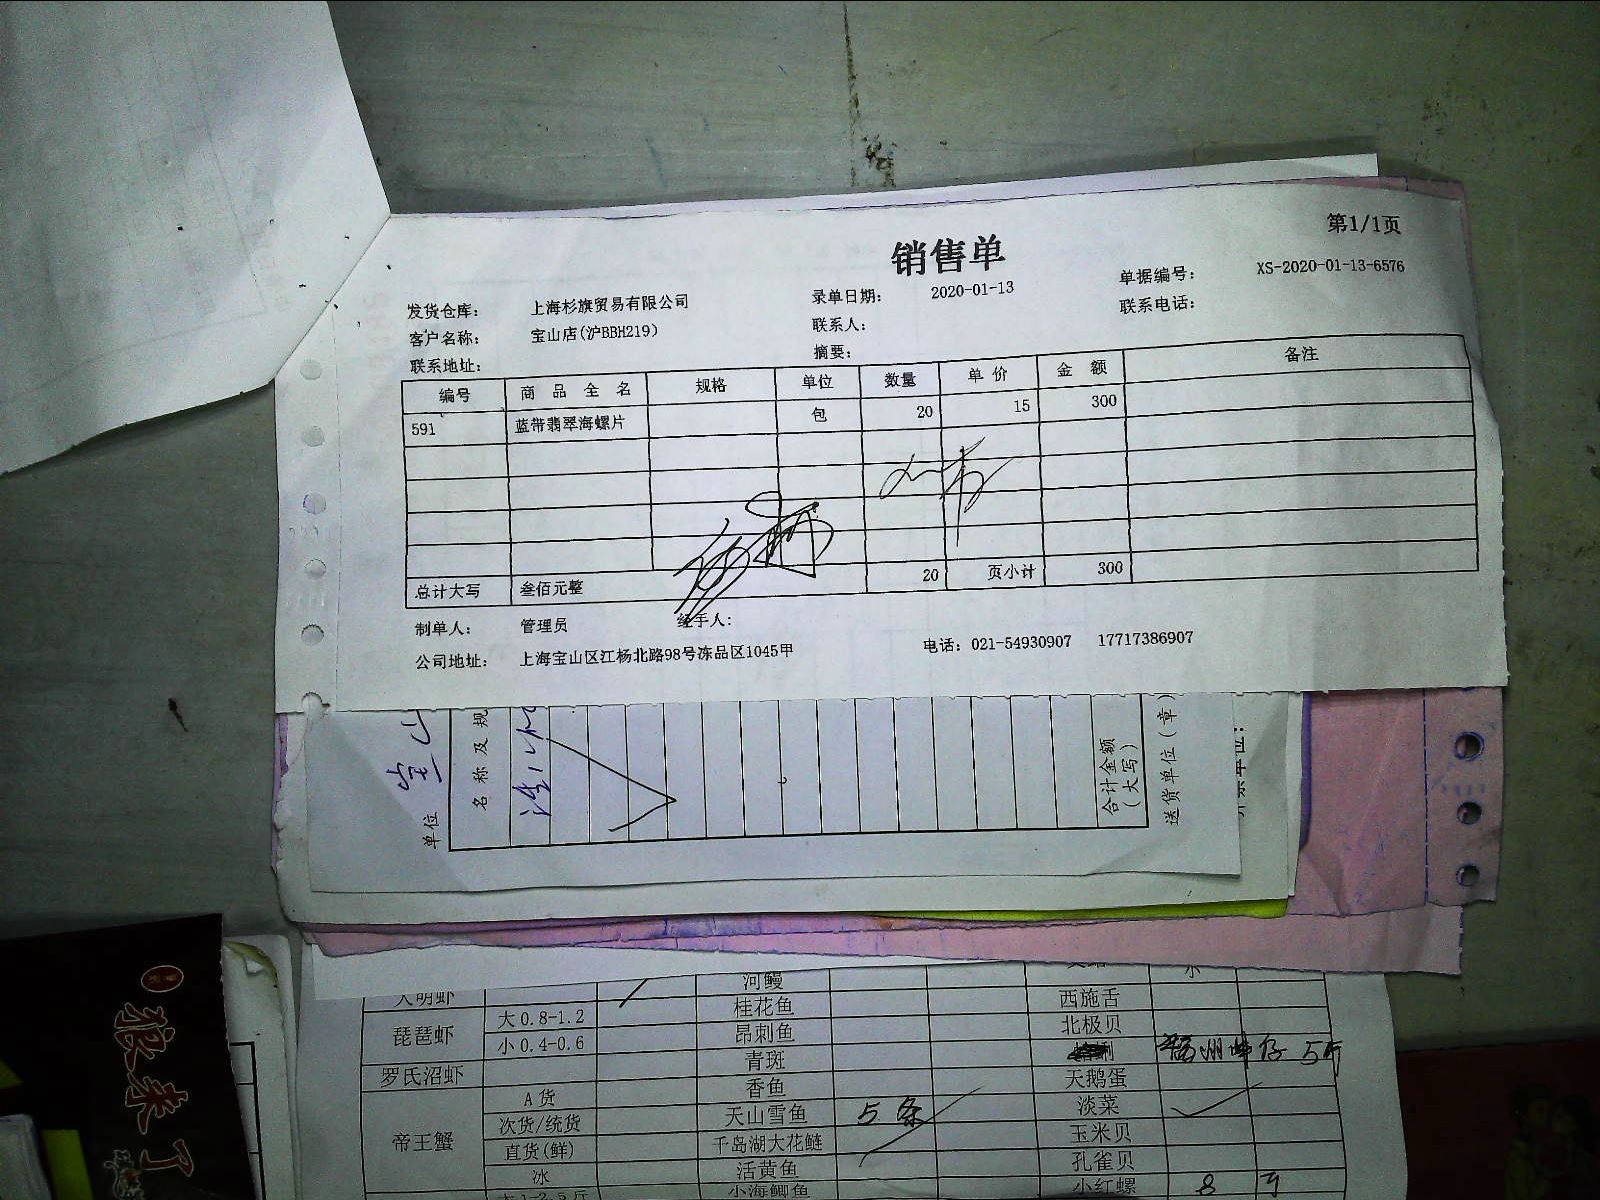 第1/1页
销售单
发货仓库： 上海杉旗贸易有限公司 录单日期： 2020-01-13 单据编号： XS-2020-01-13-6576
客户名称： 宝山店(沪BBH219) 联系人： 联系电话：
联系地址： 摘要：
编号 商品全名 规格 单位 数量 单价 金额 备注
591 蓝带翡翠海螺片 包 20 15 300
总计大写 叁佰元整 20 页小计 300
制单人： 管理员 经手人：
公司地址： 上海宝山区江杨北路98号冻品区1045甲 电话：021-54930907 17717386907
单位
名称及规
合计金额
（大写）
送货单位（章）
大明虾 河鳗
琵琶虾 大0.8-1.2 桂花鱼 西施舌
小0.4-0.6 昂刺鱼 北极贝
罗氏沼虾 青斑 5斤
帝王蟹 A货 香鱼 天鹅蛋
次货/统货 天山雪鱼 5条 淡菜
直货(鲜) 千岛湖大花鲢 玉米贝
冰 活黄鱼 孔雀贝
小海鲫鱼 小红螺 8斤
狼来了